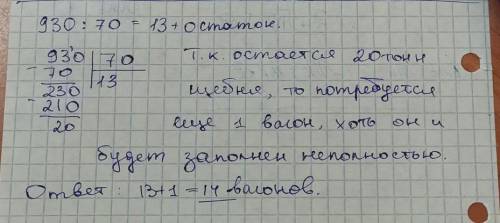 930 : 70 = 13 + остаток.
930 | 70
- 70 | 13
230
- 210
20
Т.к. остается 20 тонн
щебня, то потребуется
еще 1 вагон, хоть он и
будет заполнен неполностью.
Ответ: 13+1 = 14 вагонов.